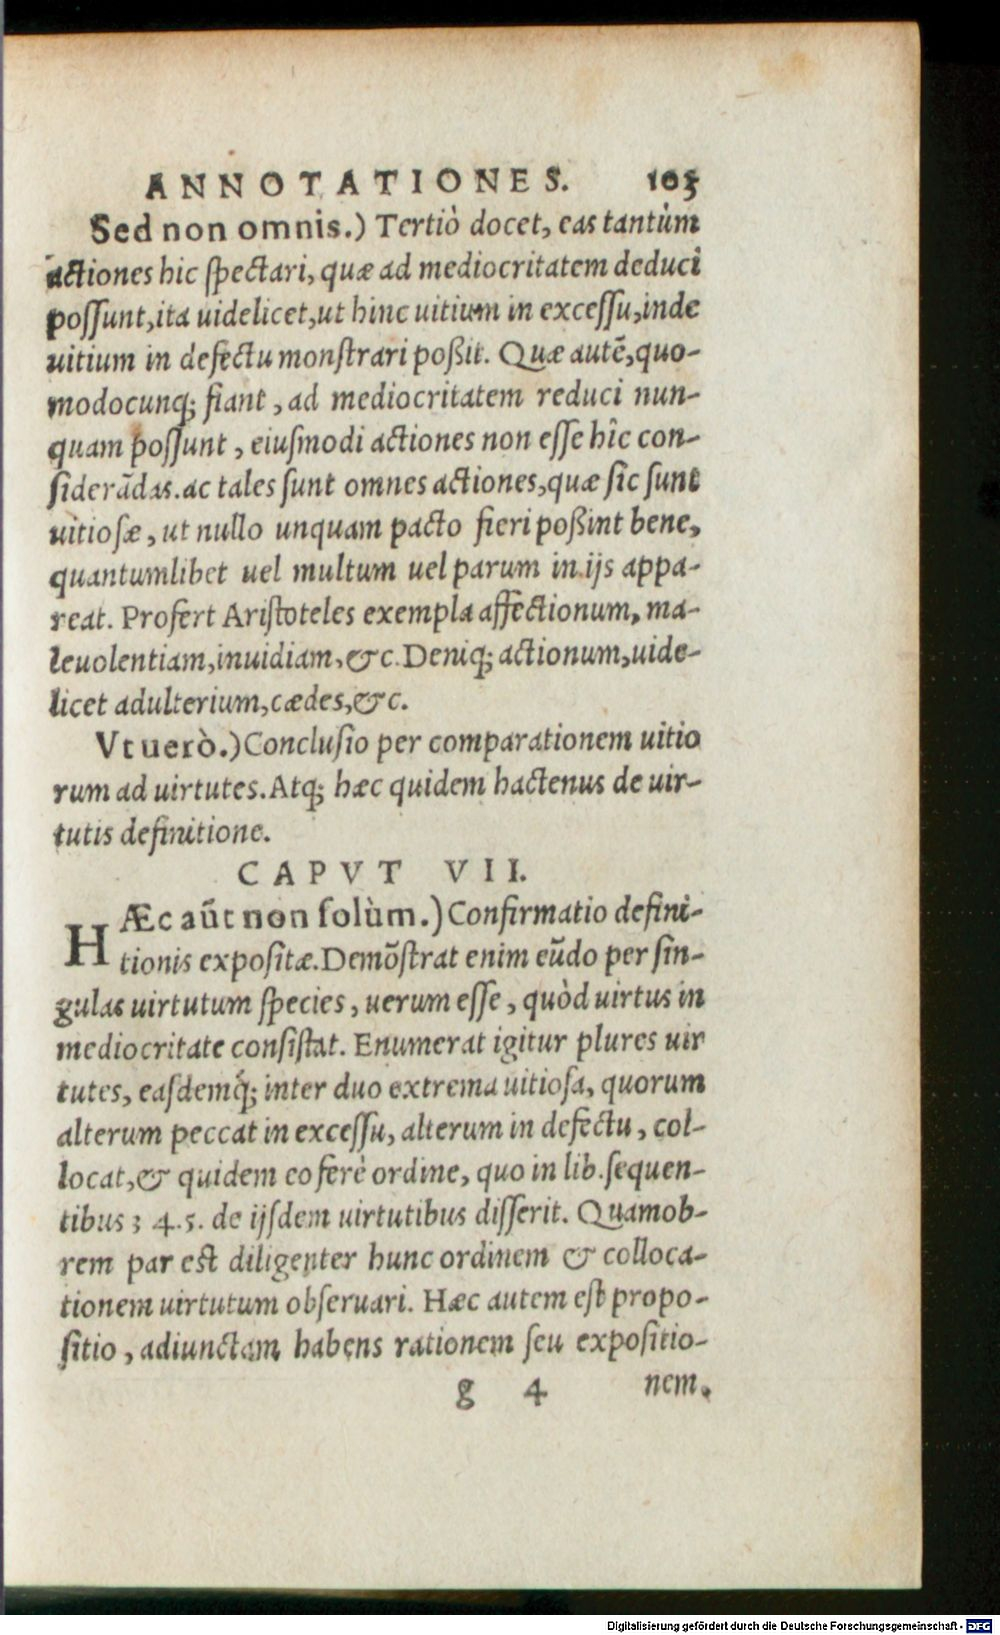 ANNOTATIONES. 103
Sed non omnis.) Tertiò docet, eas tantùm
actiones hic spectari, quæ ad mediocritatem deduci
possunt, ita uidelicet, ut hinc uitium in excessu, inde
uitium in defectu monstrari poßit. Quæ autē, quo-
modocunq; fiant, ad mediocritatem reduci nun-
quam possunt, eiusmodi actiones non esse hîc con-
siderādas. ac tales sunt omnes actiones, quæ sic sunt
uitiosæ, ut nullo unquam pacto fieri poßint bene,
quantumlibet uel multum uel parum in ijs appa-
reat. Profert Aristoteles exempla affectionum, ma-
leuolentiam, inuidiam, &c. Deniq; actionum, uide-
licet adulterium, cædes, &c.
Vt uerò.) Conclusio per comparationem uitio
rum ad uirtutes. Atq; hæc quidem hactenus de uir-
tutis definitione.
CAPVT VII.
HÆc aūt non solùm.) Confirmatio defini-
tionis expositæ. Demōstrat enim eūdo per sin-
gulas uirtutum species, uerum esse, quòd uirtus in
mediocritate consistat. Enumerat igitur plures uir
tutes, easdemq́; inter duo extrema uitiosa, quorum
alterum peccat in excessu, alterum in defectu, col-
locat, & quidem eo ferè ordine, quo in lib. sequen-
tibus 3 4. 5. de ijsdem uirtutibus disserit. Quamob-
rem par est diligenter hunc ordinem & colloca-
tionem uirtutum obseruari. Hæc autem est propo-
sitio, adiunctam habens rationem seu expositio-
g 4 nem.
Digitalisierung gefördert durch die Deutsche Forschungsgemeinschaft - DFG